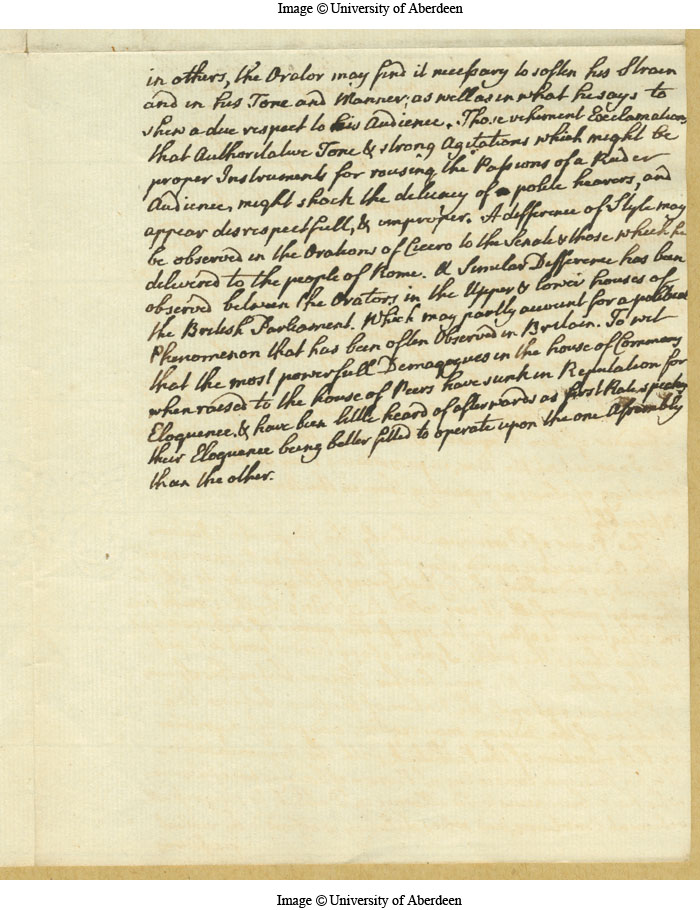 Image © University of Aberdeen
in others, the Orator may find it necessary to soften his Strain
and in his Tone and Manner; as well as in what he says to
shew a due respect to his Audience. Those vehement Exclamations
that Authoritative Tone & strong Agitations which might be
proper Instruments for rousing the Passions of a Ruder
Audience, might shock the delicacy of polite hearers, and
appear disrespectfull, & improper. A difference of Style may
be observed in the Orations of Cicero to the Senate & those which he
delivered to the people of Rome. A Similar Difference has been
observed between the Orators in the Upper & lower houses of
the British Parliament. Which may partly account for a political
Phenomenon that has been often Observed in Britain. To wit
that the most powerfull Demagogues in the house of Commons
when raised to the house of Peers have sunk in Reputation for
Eloquence. & have been little heard of afterwards as first Rate speakers
their Eloquence being better fitted to operate upon the one Assembly
than the other.
Image © University of Aberdeen